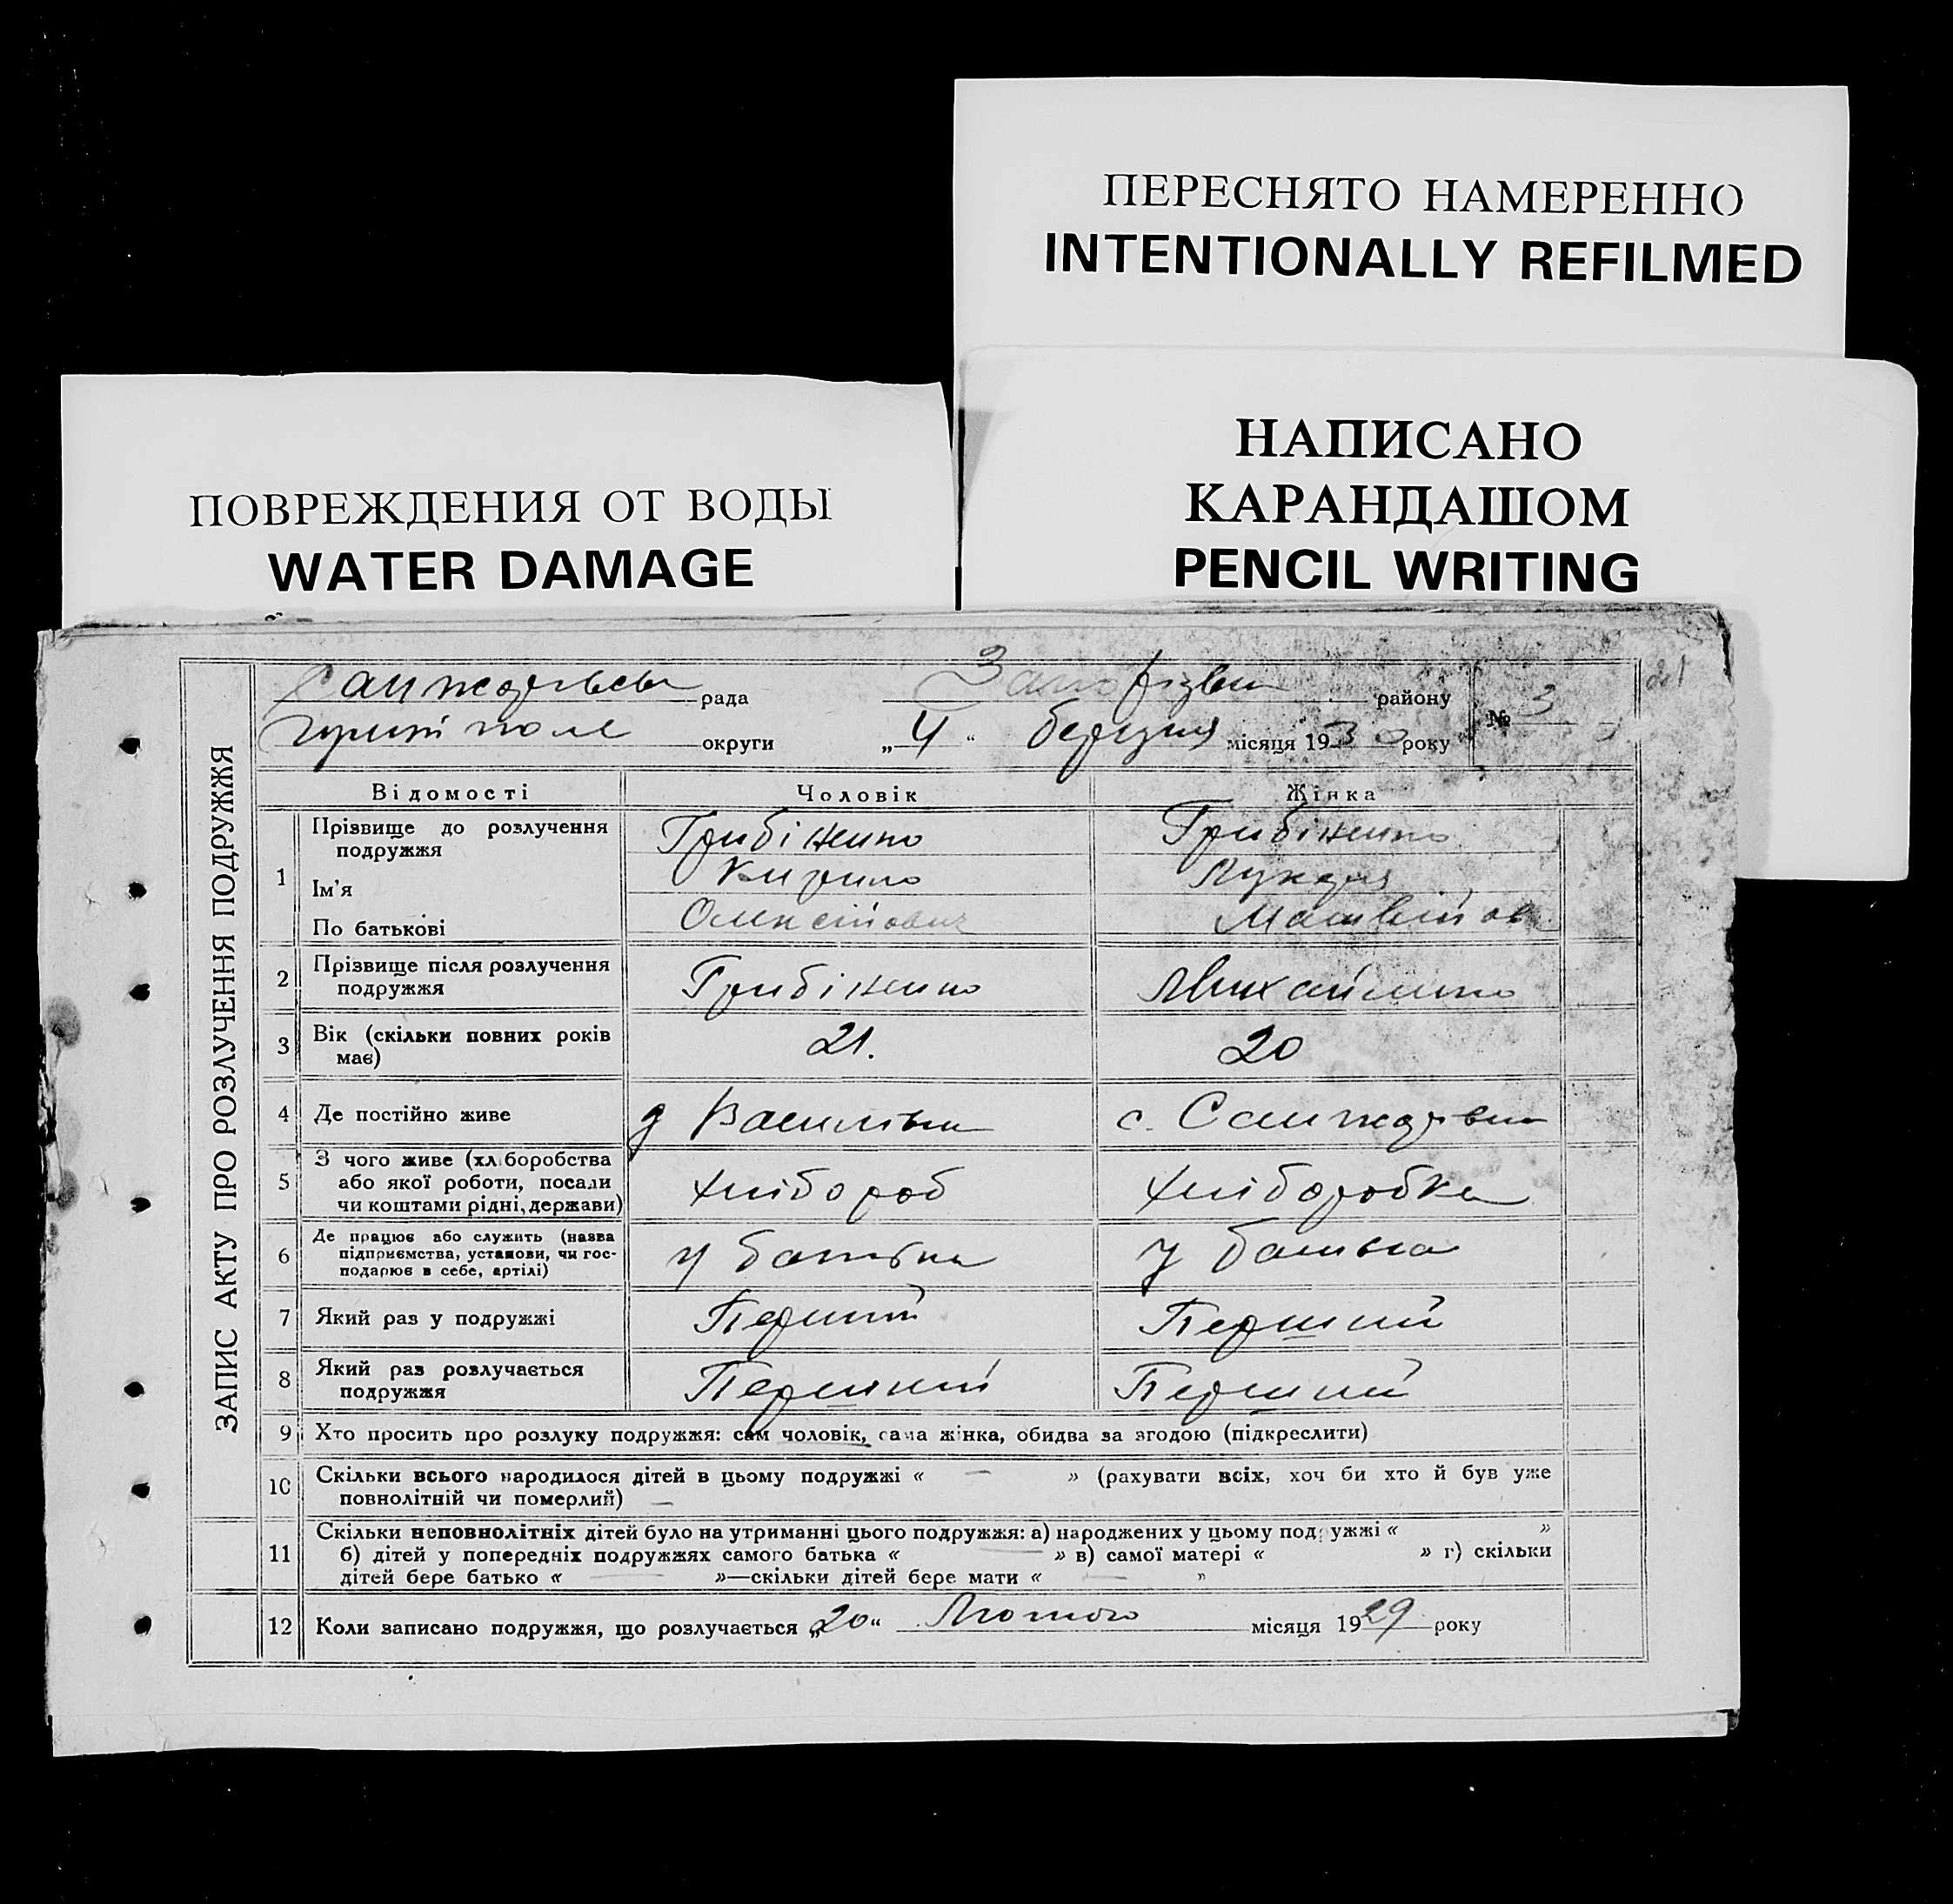 ПЕРЕСНЯТО НАМЕРЕННО
INTENTIONALLY REFILMED
НАПИСАНО
КАРАНДАШОМ
PENCIL WRITING
ПОВРЕЖДЕНИЯ ОТ ВОДЫ
WATER DAMAGE
ЗАПИС АКТУ ПРО РОЗЛУЧЕННЯ ПОДРУЖЖЯ
рада району
№ 3
округи „4“ березня місяця 1930 року
Відомості Чоловік Жінка
1 Прізвище до розлучення подружжя Грибіненко Грибіненко
Ім'я Кирило
По батькові Олексійович Матвійов
2 Прізвище після розлучення подружжя Грибіненко Михайленко
3 Вік (скільки повних років має) 21. 20
4 Де постійно живе Василівка с.
5 З чого живе (хліборобства або якої роботи, посади чи коштами рідні, держави) Хлібороб Хліборобка
6 Де працює або служить (назва підприємства, установи, чи господарює в себе, артілі) у батька у батька
7 Який раз у подружжі Перший Перший
8 Який раз розлучається подружжя Перший Перший
9 Хто просить про розлуку подружжя: сам чоловік, сама жінка, обидва за згодою (підкреслити)
10 Скільки всього народилося дітей в цьому подружжі « — » (рахувати всіх, хоч би хто й був уже
повнолітній чи померлий) —
11 Скільки неповнолітніх дітей було на утриманні цього подружжя: а) народжених у цьому подружжі « »
б) дітей у попередніх подружжях самого батька « — » в) самої матері « » г) скільки
дітей бере батько « — »—скільки дітей бере мати « — »
12 Коли записано подружжя, що розлучається „20“ Лютого місяця 1929 року